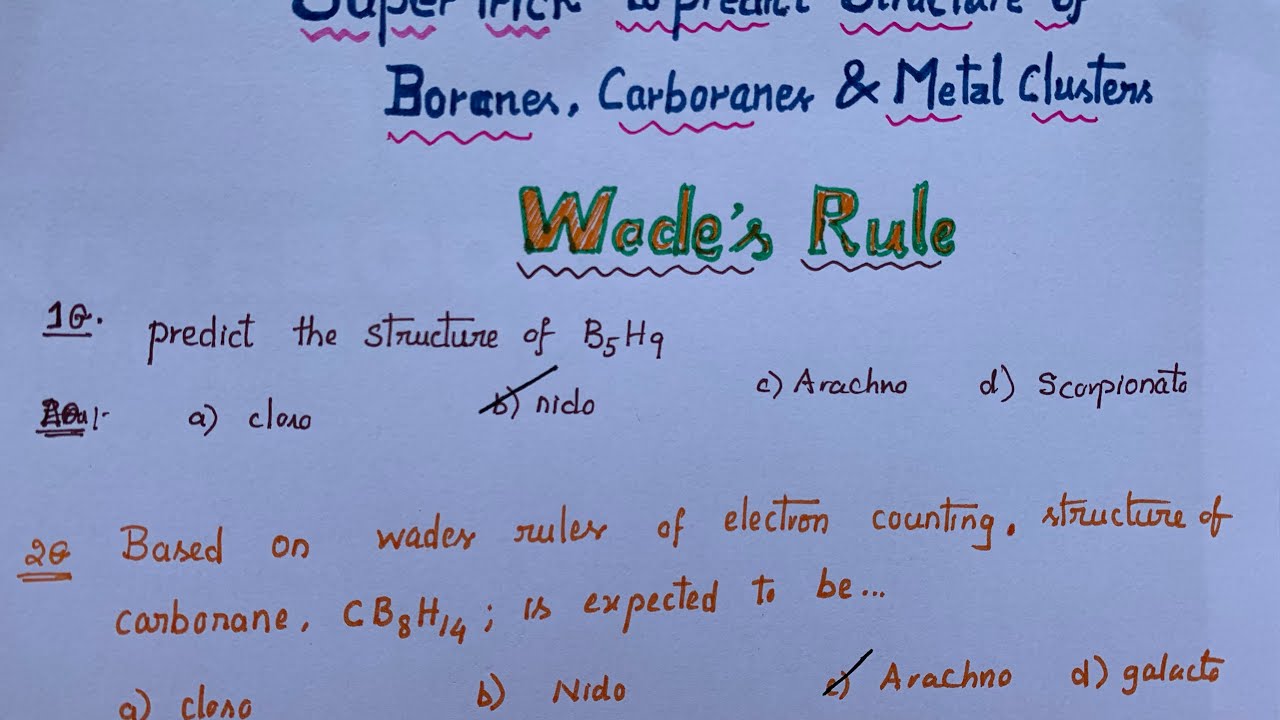 Super Trick to predict Structure of
Boranes, Carboranes & Metal Clusters
Wade's Rule
1Q. predict the structure of B5H9
a) closo b) nido c) Arachno d) Scorpionato
2Q Based on wades rules of electron counting. structure of
carborane, CB8H14; is expected to be...
a) closo b) Nido c) Arachno d) galacto